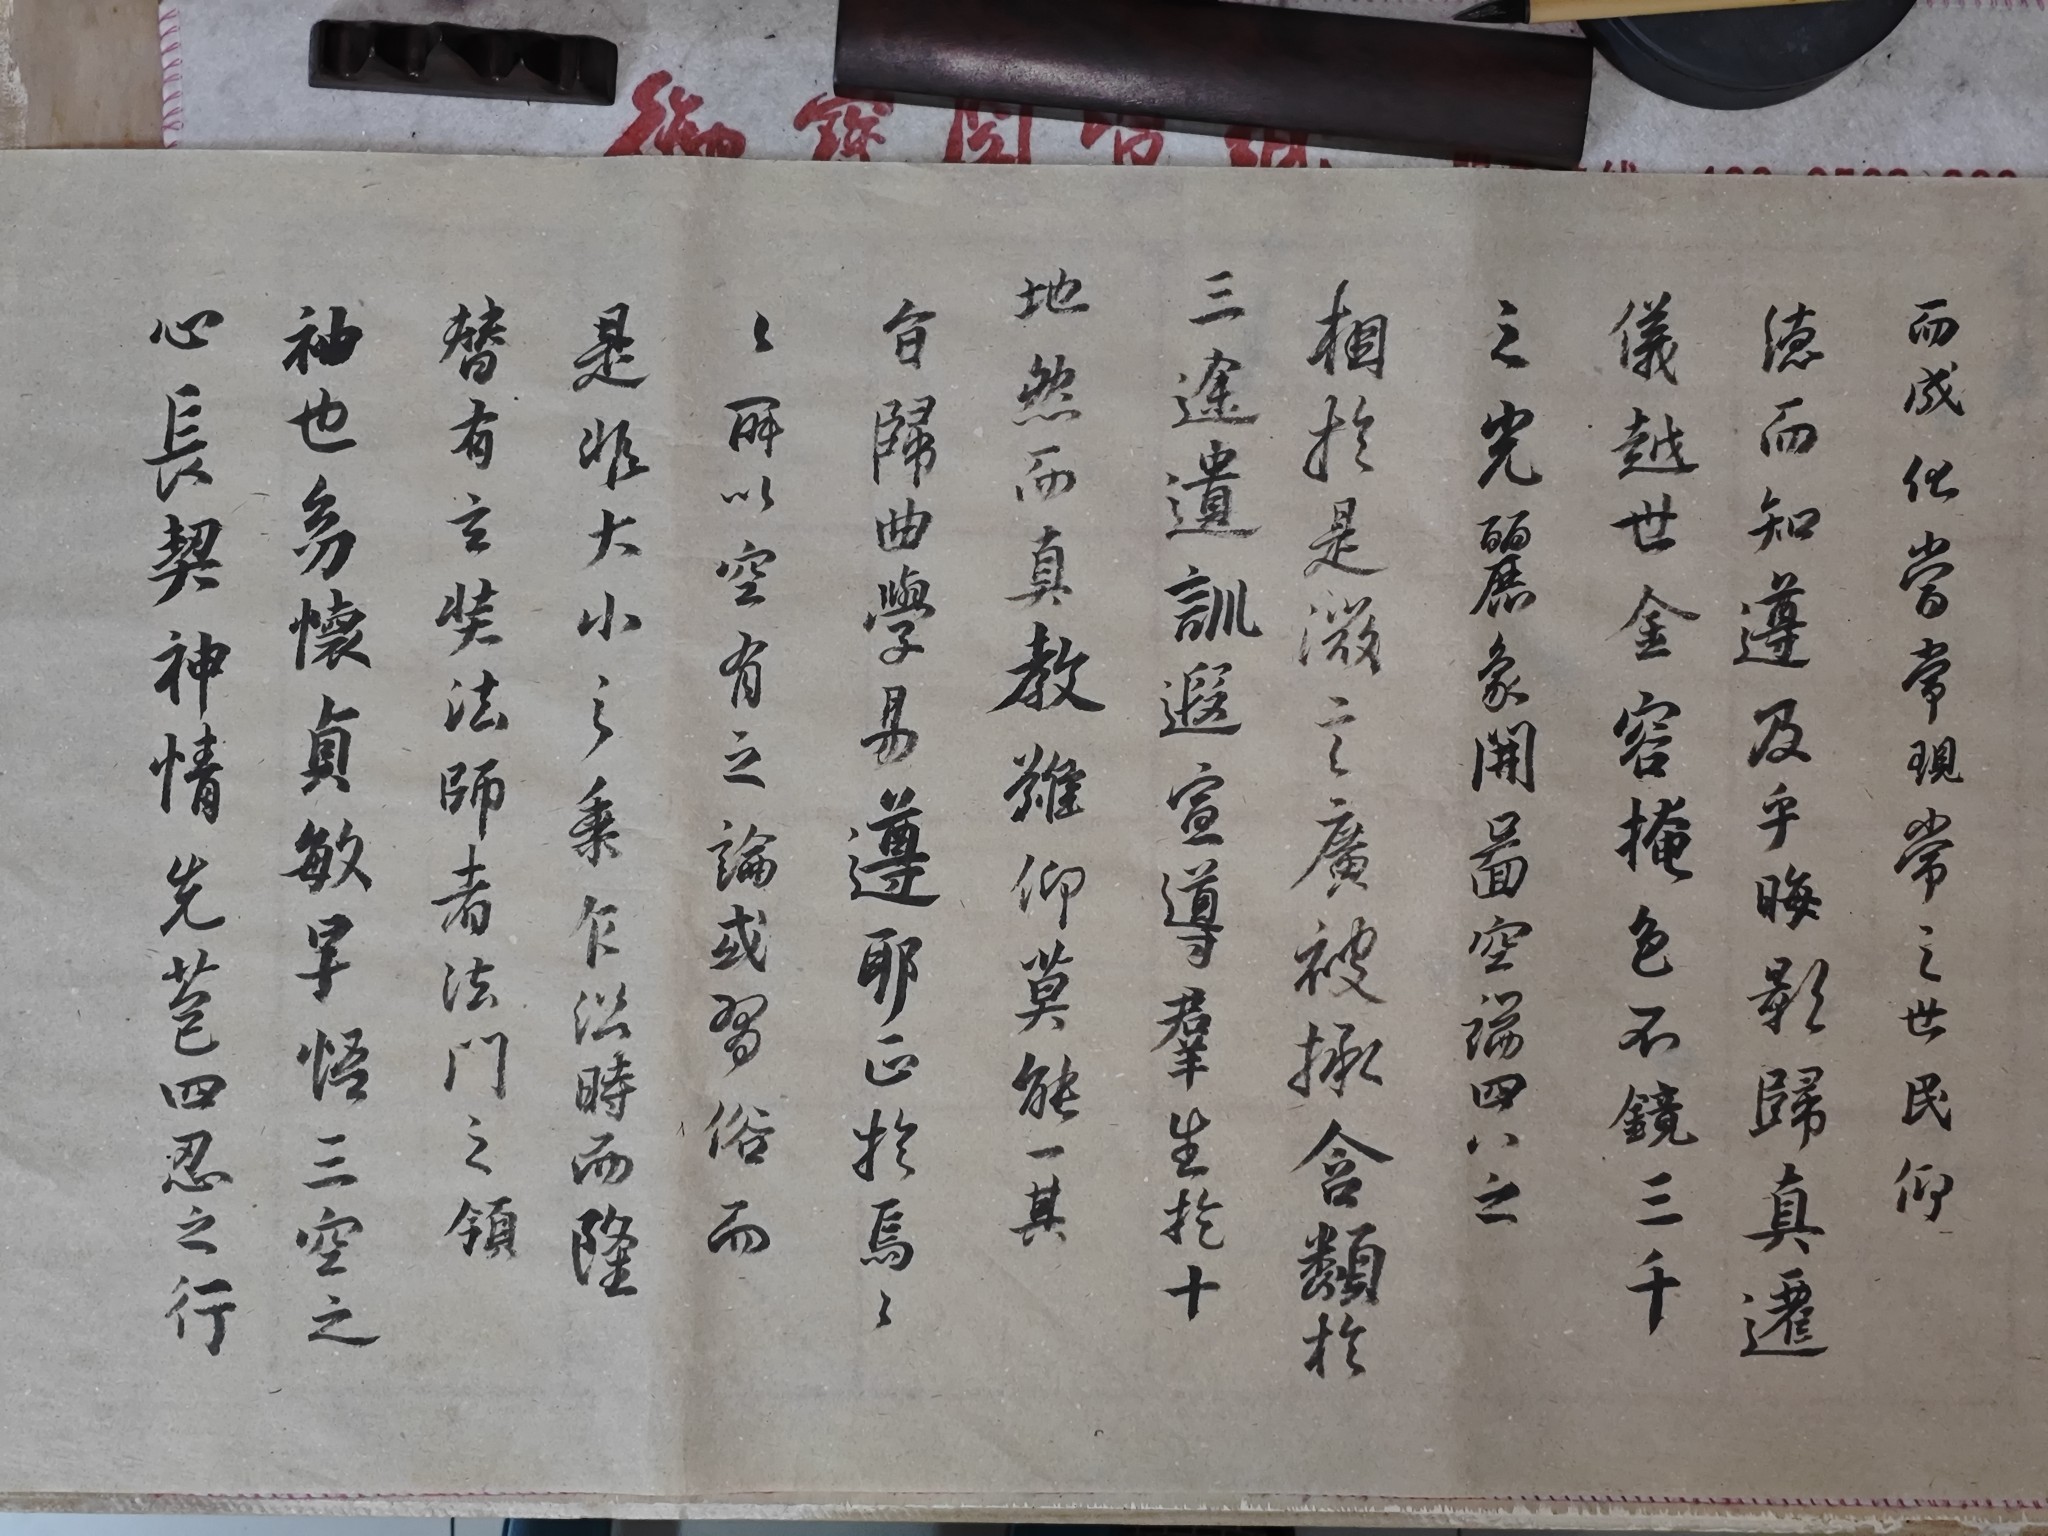 而成化當常現常之世民仰
德而知遵及乎晦影歸真遷
儀越世金容掩色不鏡三千
之光麗象開啚空端四八之
相於是微言廣被拯含類於
三途遺訓遐宣導群生於十
地然而真教難仰莫能一其
旨歸曲學易遵耶正於焉〻
〻所以空有之論或習俗而
是非大小之乘乍沿時而隆
替有玄奘法師者法門之領
袖也幼懷貞敏早悟三空之
心長契神情先苞四忍之行